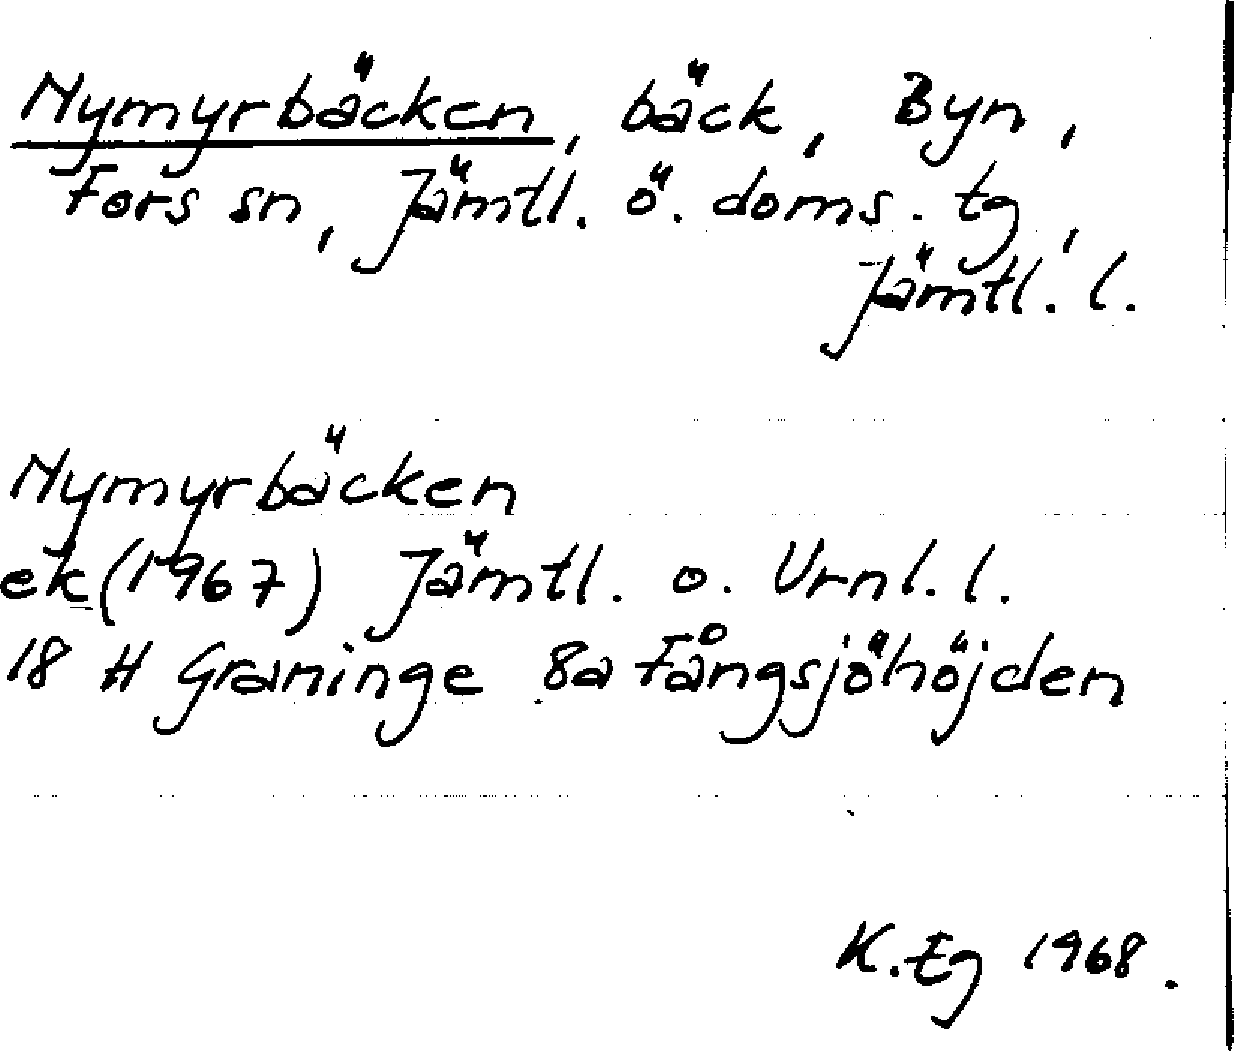 Nymyrbäcken, bäck, Byn,
Fors sn, Jämtl. ö. doms. tg,
Jämtl. l.
Nymyrbäcken
ek (1967) Jämtl. o. Vrnl. l.
18 H Graninge 8a Fångsjöhöjden
K. Eg 1968.